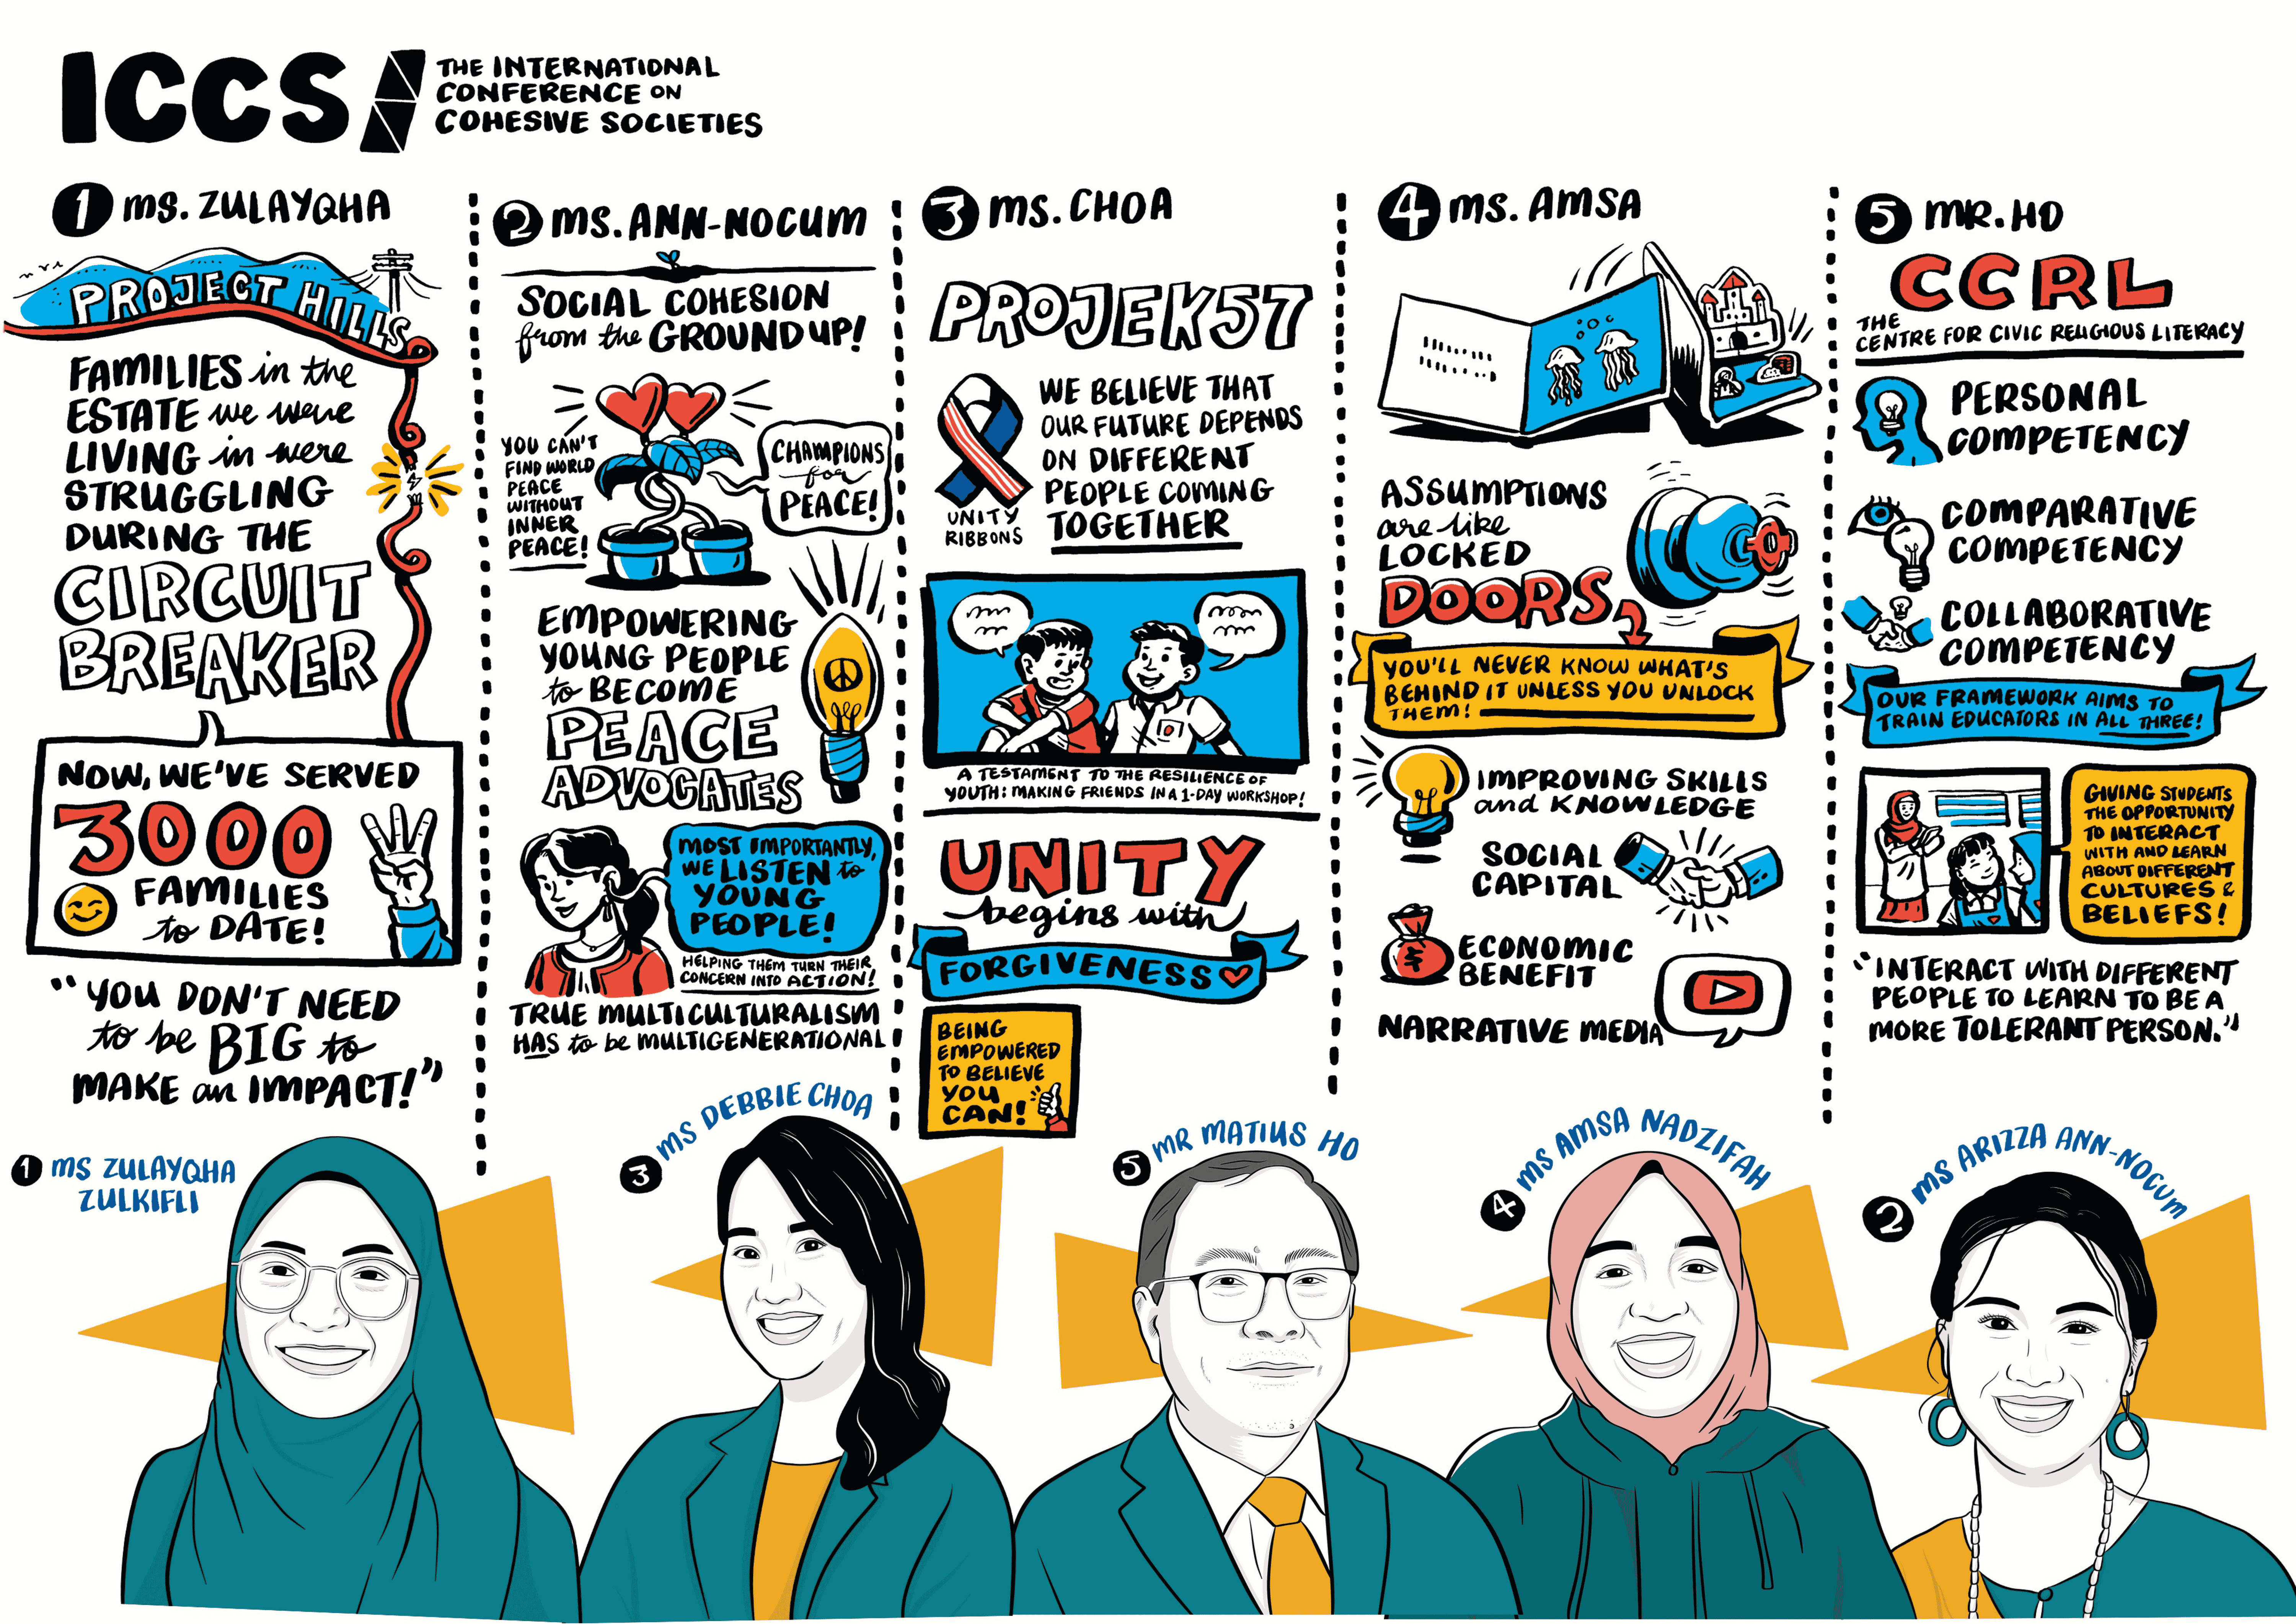 ICCS
THE INTERNATIONAL
CONFERENCE ON
COHESIVE SOCIETIES
1 MS. ZULAYQHA
PROJECT HILLS
FAMILIES in the
ESTATE we were
LIVING in were
STRUGGLING
DURING THE
CIRCUIT
BREAKER
NOW, WE'VE SERVED
3000
FAMILIES
to DATE!
"YOU DON'T NEED
to be BIG to
MAKE an IMPACT!"
2 MS. ANN-NOCUM
SOCIAL COHESION
from the GROUND UP!
YOU CAN'T
FIND WORLD
PEACE
WITHOUT
INNER
PEACE!
CHAMPIONS
for
PEACE!
EMPOWERING
YOUNG PEOPLE
to BECOME
PEACE
ADVOCATES
MOST IMPORTANTLY,
WE LISTEN to
YOUNG
PEOPLE!
HELPING THEM TURN THEIR
CONCERN INTO ACTION!
TRUE MULTICULTURALISM
HAS to be MULTIGENERATIONAL!
3 MS. CHOA
PROJEK57
UNITY
RIBBONS
WE BELIEVE THAT
OUR FUTURE DEPENDS
ON DIFFERENT
PEOPLE COMING
TOGETHER
A TESTAMENT TO THE RESILIENCE OF
YOUTH: MAKING FRIENDS IN A 1-DAY WORKSHOP!
UNITY
begins with
FORGIVENESS
BEING
EMPOWERED
TO BELIEVE
YOU
CAN!
4 MS. AMSA
ASSUMPTIONS
are like
LOCKED
DOORS
YOU'LL NEVER KNOW WHAT'S
BEHIND IT UNLESS YOU UNLOCK
THEM!
IMPROVING SKILLS
and KNOWLEDGE
SOCIAL
CAPITAL
ECONOMIC
BENEFIT
NARRATIVE MEDIA
5 MR. HO
CCRL
THE
CENTRE FOR CIVIC RELIGIOUS LITERACY
PERSONAL
COMPETENCY
COMPARATIVE
COMPETENCY
COLLABORATIVE
COMPETENCY
OUR FRAMEWORK AIMS TO
TRAIN EDUCATORS IN ALL THREE!
GIVING STUDENTS
THE OPPORTUNITY
TO INTERACT
WITH AND LEARN
ABOUT DIFFERENT
CULTURES &
BELIEFS!
"INTERACT WITH DIFFERENT
PEOPLE TO LEARN TO BE A
MORE TOLERANT PERSON."
1 MS ZULAYQHA
ZULKIFLI
3 MS DEBBIE CHOA
5 MR MATIUS HO
4 MS AMSA NADZIFAH
2 MS ARIZZA ANN-NOCUM